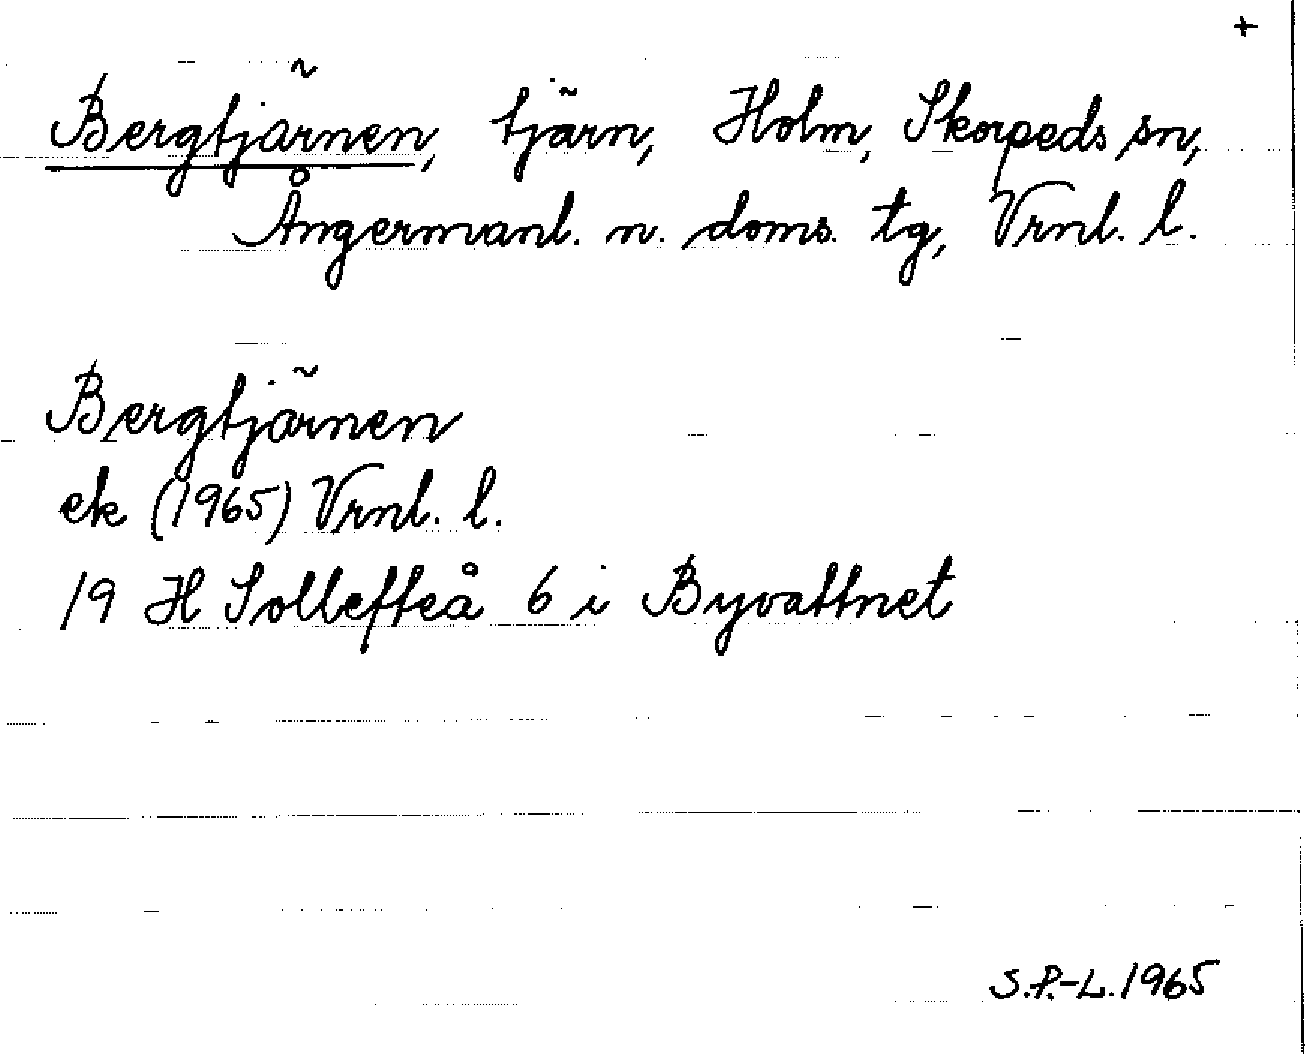 +
Bergtjärnen, tjärn, Holm, Skorpeds sn,
Ångermanl. n. doms. tg, Vrnl. l.
Bergtjärnen
ek (1965) Vrnl. l.
19 H Sollefteå 6 i Byvattnet
S.P.-L. 1965